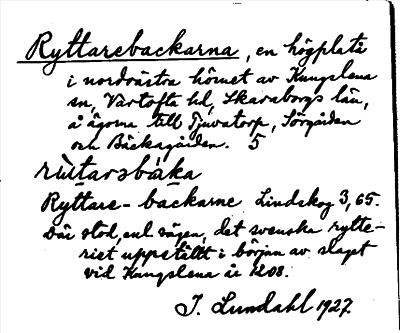 Ryttarebackarna, en högplatå
i nordvästra hörnet av Kungslena
sn, Vartofta hd, Skaraborgs län,
å ägorna till Tjuvatorp, Sörgården
och Bäckagården. 5
rùtarəbàka
Ryttare-backarne Lindskog 3, 65.
Där stod, enl sägen, det svenska rytte-
riet uppställt i början av slaget
vid Kungslena år 1208.
J. Lundahl 1927.